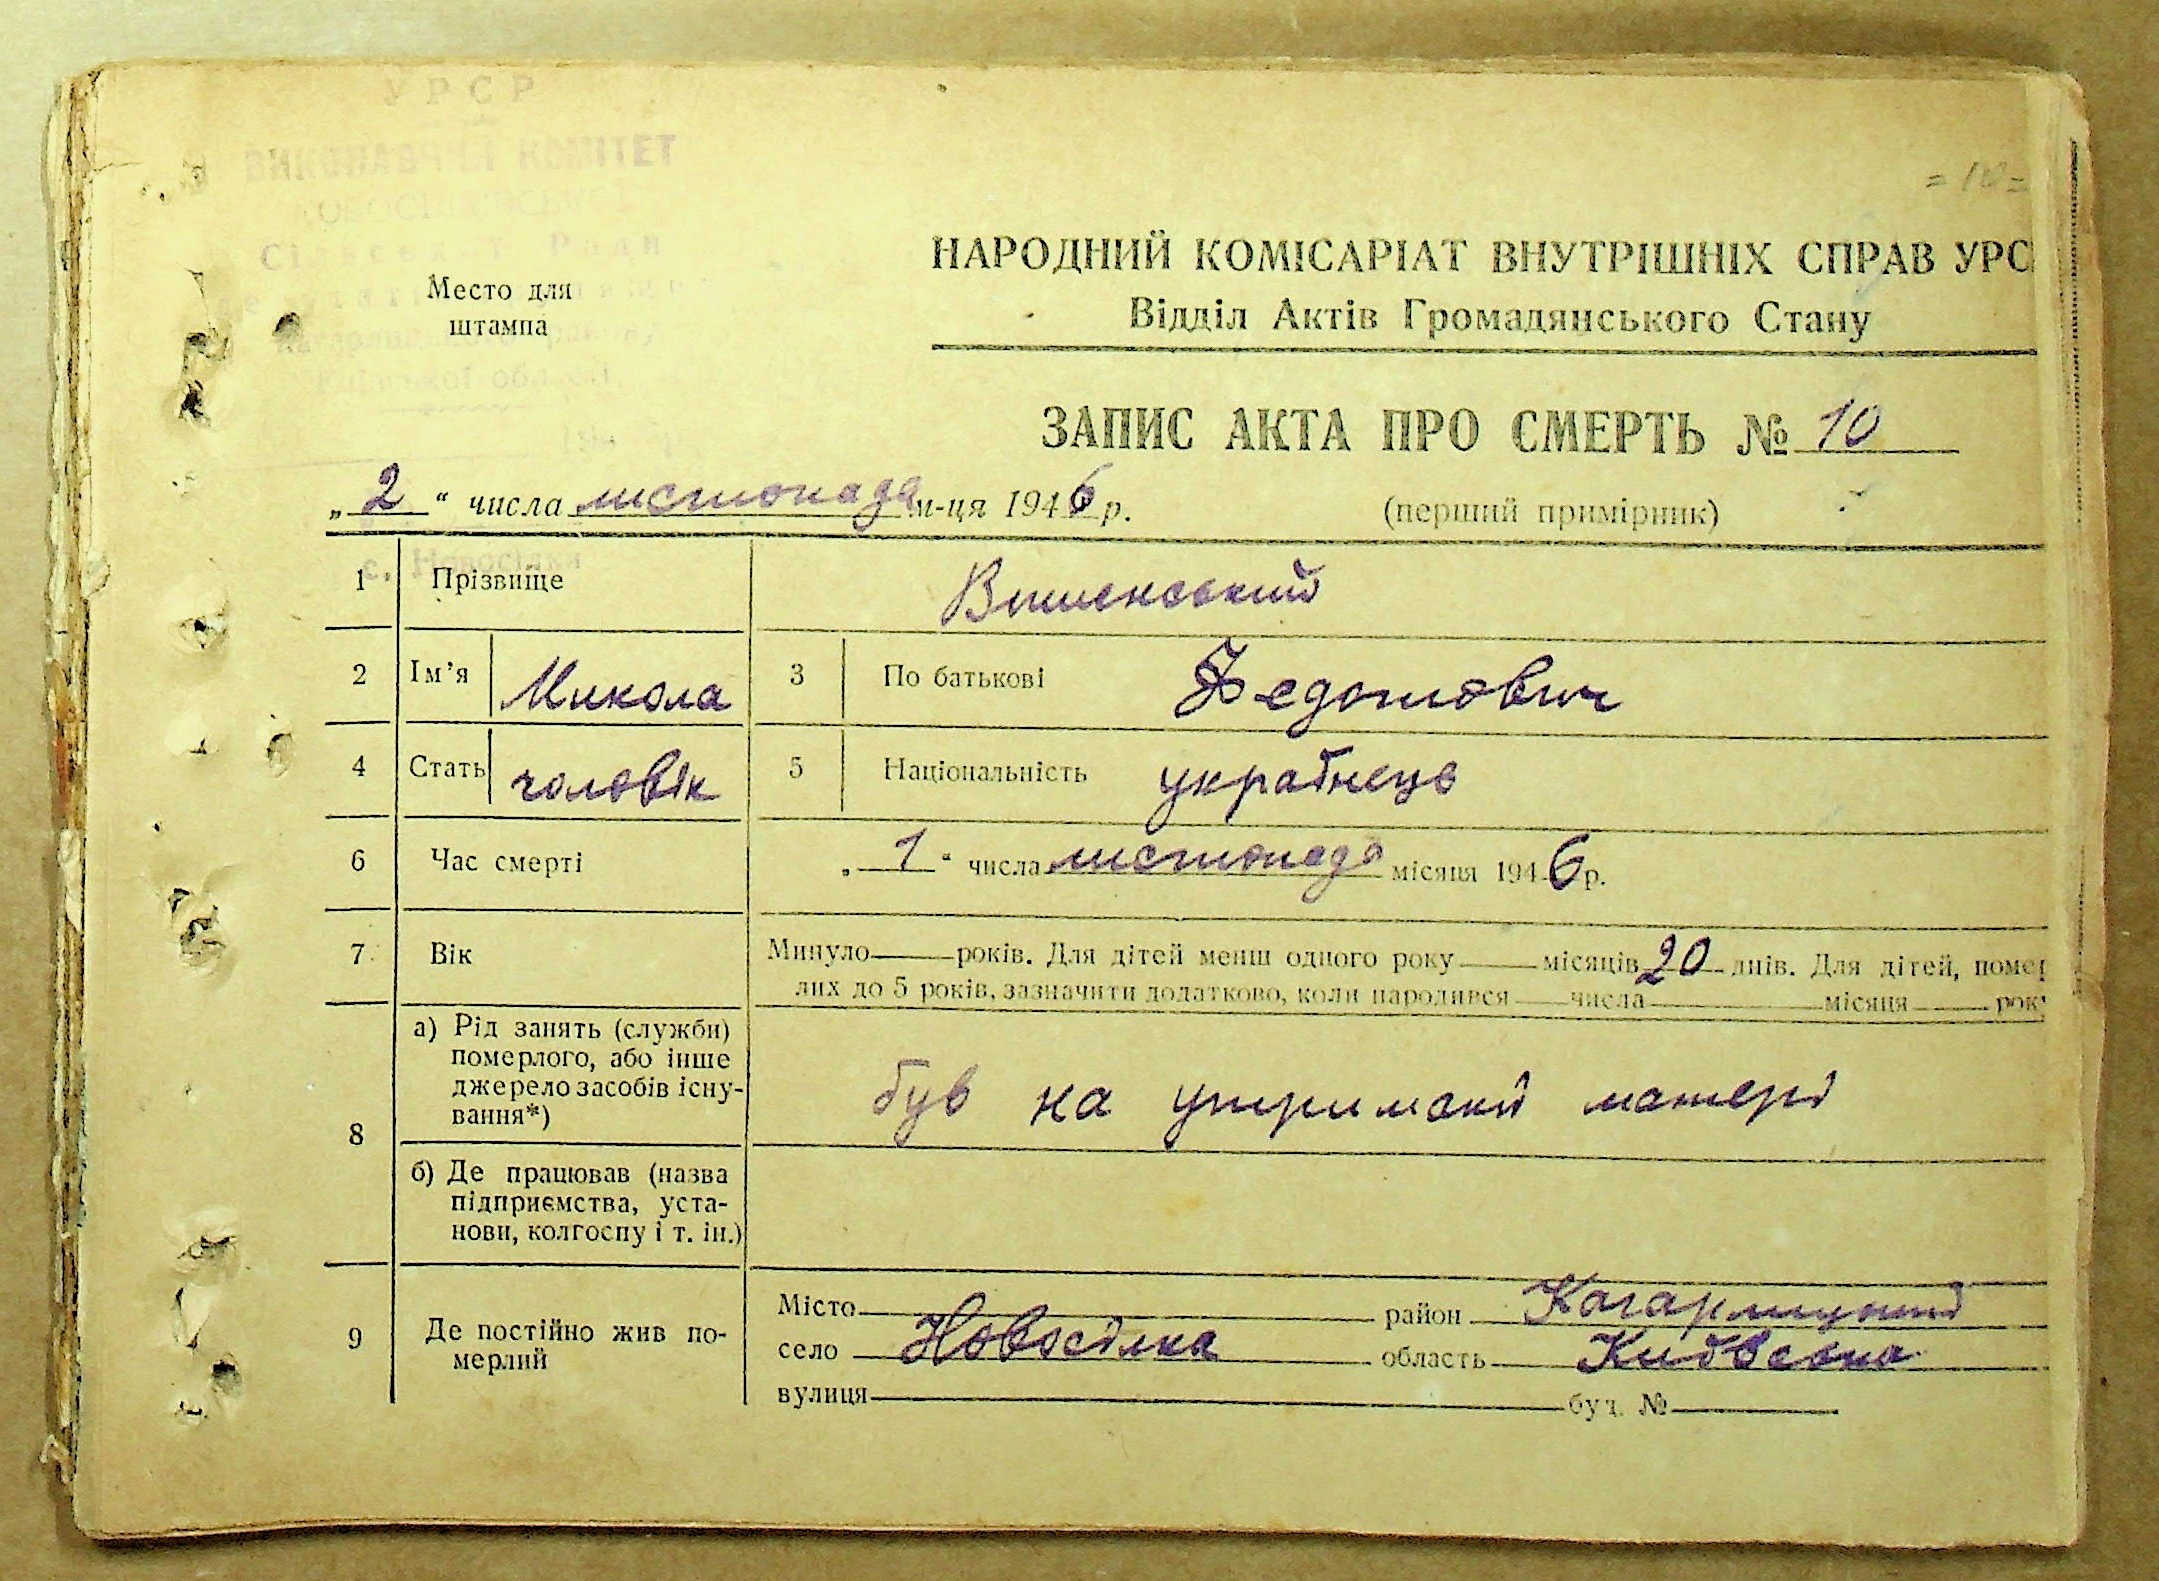 УРСР
ВИКОНАВЧИЙ КОМІТЕТ
Сільської Ради
Київської області
с. Новосілки
Место для
штампа
= 10 =
НАРОДНИЙ КОМІСАРІАТ ВНУТРІШНІХ СПРАВ УРС
Відділ Актів Громадянського Стану
ЗАПИС АКТА ПРО СМЕРТЬ № 10
„ 2 “ числа листопада м-ця 1946 р.
(перший примірник)
1 Прізвище Вишенський
2 Ім’я Микола 3 По батькові Федотович
4 Стать чоловік 5 Національність українець
6 Час смерті „ 1 “ числа листопада місяця 1946 р.
7 Вік Минуло — років. Для дітей менш одного року — місяців 20 днів. Для дітей, помер
лих до 5 років, зазначити додатково, коли народився — числа — місяця — рок
8 а) Рід занять (служби)
померлого, або інше
джерело засобів існу-
вання*)
був на утриманні матері
б) Де працював (назва
підприємства, уста-
нови, колгоспу і т. ін.)
9 Де постійно жив по-
мерлий
Місто район Кагарлицький
село Новосілка область Київська
вулиця буд. №